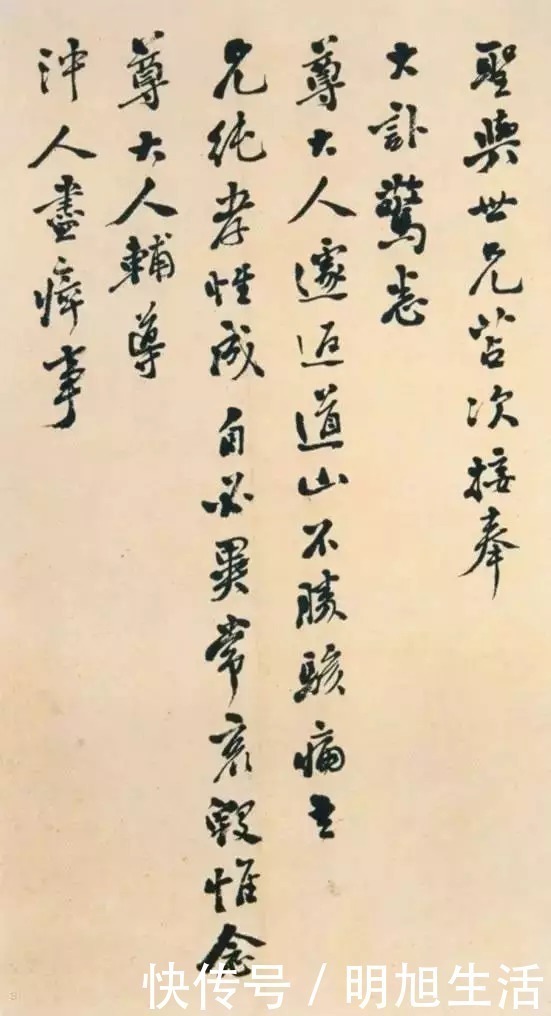 聖與世兄苫次接奉
大訃驚悉
尊大人遽返道山不勝駭痛吾
兄純孝性成自必異常哀毀惟念
尊大人輔導
沖人盡瘁事
快传号/明旭生活